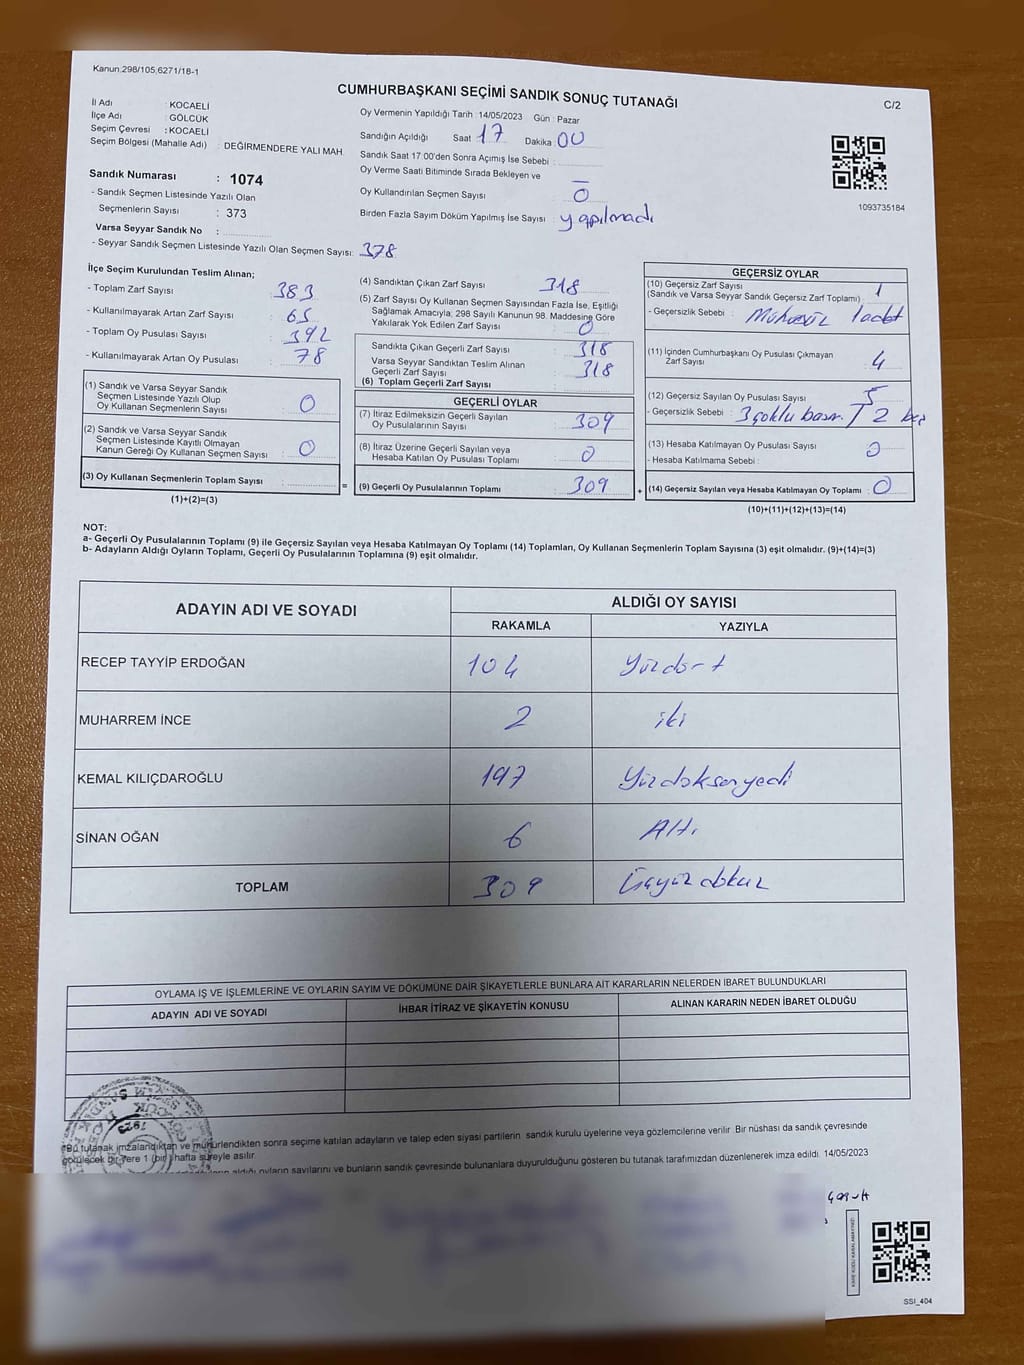 Kanun:298/105,6271/18-1
CUMHURBAŞKANI SEÇİMİ SANDIK SONUÇ TUTANAĞI
C/2
İl Adı : KOCAELİ
İlçe Adı : GÖLCÜK
Seçim Çevresi : KOCAELİ
Seçim Bölgesi (Mahalle Adı) : DEĞİRMENDERE YALI MAH
Sandık Numarası : 1074
- Sandık Seçmen Listesinde Yazılı Olan
Seçmenlerin Sayısı : 373
Varsa Seyyar Sandık No :
- Seyyar Sandık Seçmen Listesinde Yazılı Olan Seçmen Sayısı: 378
Oy Vermenin Yapıldığı Tarih :14/05/2023 Gün : Pazar
Sandığın Açıldığı Saat 17 Dakika 00
Sandık Saat 17:00'den Sonra Açımış İse Sebebi :
Oy Verme Saati Bitiminde Sırada Bekleyen ve
Oy Kullandırılan Seçmen Sayısı 0
Birden Fazla Sayım Döküm Yapılmış İse Sayısı : yapılmadı
1093735184
İlçe Seçim Kurulundan Teslim Alınan;
- Toplam Zarf Sayısı : 383
- Kullanılmayarak Artan Zarf Sayısı : 65
- Toplam Oy Pusulası Sayısı : 392
- Kullanılmayarak Artan Oy Pusulası : 78
(1) Sandık ve Varsa Seyyar Sandık
Seçmen Listesinde Yazılı Olup
Oy Kullanan Seçmenlerin Sayısı : 0
(2) Sandık ve Varsa Seyyar Sandık
Seçmen Listesinde Kayıtlı Olmayan
Kanun Gereği Oy Kullanan Seçmen Sayısı : 0
(3) Oy Kullanan Seçmenlerin Toplam Sayısı :
(1)+(2)=(3)
=
(4) Sandıktan Çıkan Zarf Sayısı : 318
(5) Zarf Sayısı Oy Kullanan Seçmen Sayısından Fazla İse, Eşitliği
Sağlamak Amacıyla; 298 Sayılı Kanunun 98. Maddesine Göre
Yakılarak Yok Edilen Zarf Sayısı : 0
Sandıkta Çıkan Geçerli Zarf Sayısı : 318
Varsa Seyyar Sandıktan Teslim Alınan
Geçerli Zarf Sayısı : 318
(6) Toplam Geçerli Zarf Sayısı :
GEÇERLİ OYLAR
(7) İtiraz Edilmeksizin Geçerli Sayılan
Oy Pusulalarının Sayısı : 309
(8) İtiraz Üzerine Geçerli Sayılan veya
Hesaba Katılan Oy Pusulası Toplamı : 0
(9) Geçerli Oy Pusulalarının Toplamı : 309
+
GEÇERSİZ OYLAR
(10) Geçersiz Zarf Sayısı
(Sandık ve Varsa Seyyar Sandık Geçersiz Zarf Toplamı) : 1
- Geçersizlik Sebebi : Mühürsüz 1 adet
(11) İçinden Cumhurbaşkanı Oy Pusulası Çıkmayan
Zarf Sayısı : 4
(12) Geçersiz Sayılan Oy Pusulası Sayısı : 5
- Geçersizlik Sebebi : 3 çoklu basım / 2 boş
(13) Hesaba Katılmayan Oy Pusulası Sayısı : 0
- Hesaba Katılmama Sebebi :
(14) Geçersiz Sayılan veya Hesaba Katılmayan Oy Toplamı : 0
(10)+(11)+(12)+(13)=(14)
NOT:
a- Geçerli Oy Pusulalarının Toplamı (9) ile Geçersiz Sayılan veya Hesaba Katılmayan Oy Toplamı (14) Toplamları, Oy Kullanan Seçmenlerin Toplam Sayısına (3) eşit olmalıdır. (9)+(14)=(3)
b- Adayların Aldığı Oyların Toplamı, Geçerli Oy Pusulalarının Toplamına (9) eşit olmalıdır.
ADAYIN ADI VE SOYADI ALDIĞI OY SAYISI
RAKAMLA YAZIYLA
RECEP TAYYİP ERDOĞAN 104 Yüzdört
MUHARREM İNCE 2 iki
KEMAL KILIÇDAROĞLU 197 Yüzdoksanyedi
SİNAN OĞAN 6 Altı
TOPLAM 309 Üçyüzdokuz
OYLAMA İŞ VE İŞLEMLERİNE VE OYLARIN SAYIM VE DÖKÜMÜNE DAİR ŞİKAYETLERLE BUNLARA AİT KARARLARIN NELERDEN İBARET BULUNDUKLARI
ADAYIN ADI VE SOYADI İHBAR İTİRAZ VE ŞİKAYETİN KONUSU ALINAN KARARIN NEDEN İBARET OLDUĞU
Bu tutanak imzalandıktan ve mühürlendikten sonra seçime katılan adayların ve talep eden siyasi partilerin sandık kurulu üyelerine veya gözlemcilerine verilir. Bir nüshası da sandık çevresinde
görülecek bir yere 1 (bir) hafta süreyle asılır.
aldığı oyların sayılarını ve bunların sandık çevresinde bulunanlara duyurulduğunu gösteren bu tutanak tarafımızdan düzenlenerek imza edildi. 14/05/2023
KARE KODU KARALAMAYINIZ!
SSI_404